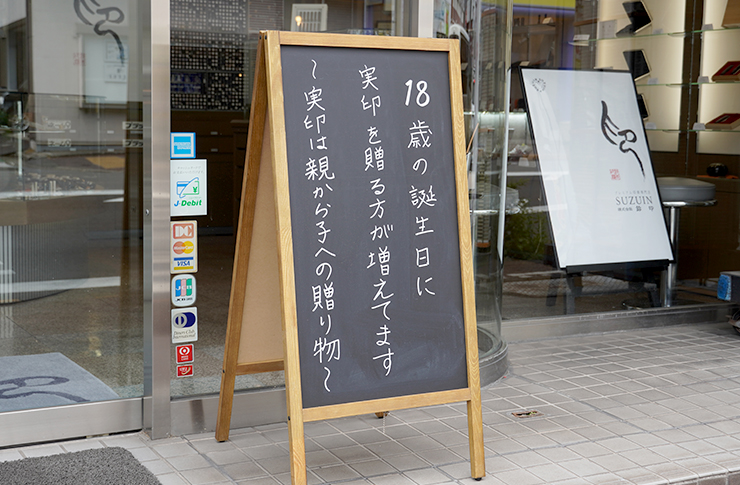 18歳の誕生日に
実印を贈る方が増えてます
〜実印は親から子への贈り物〜
J-Debit
DC
MasterCard
VISA
JCB
Diners Club
International
SUZUIN